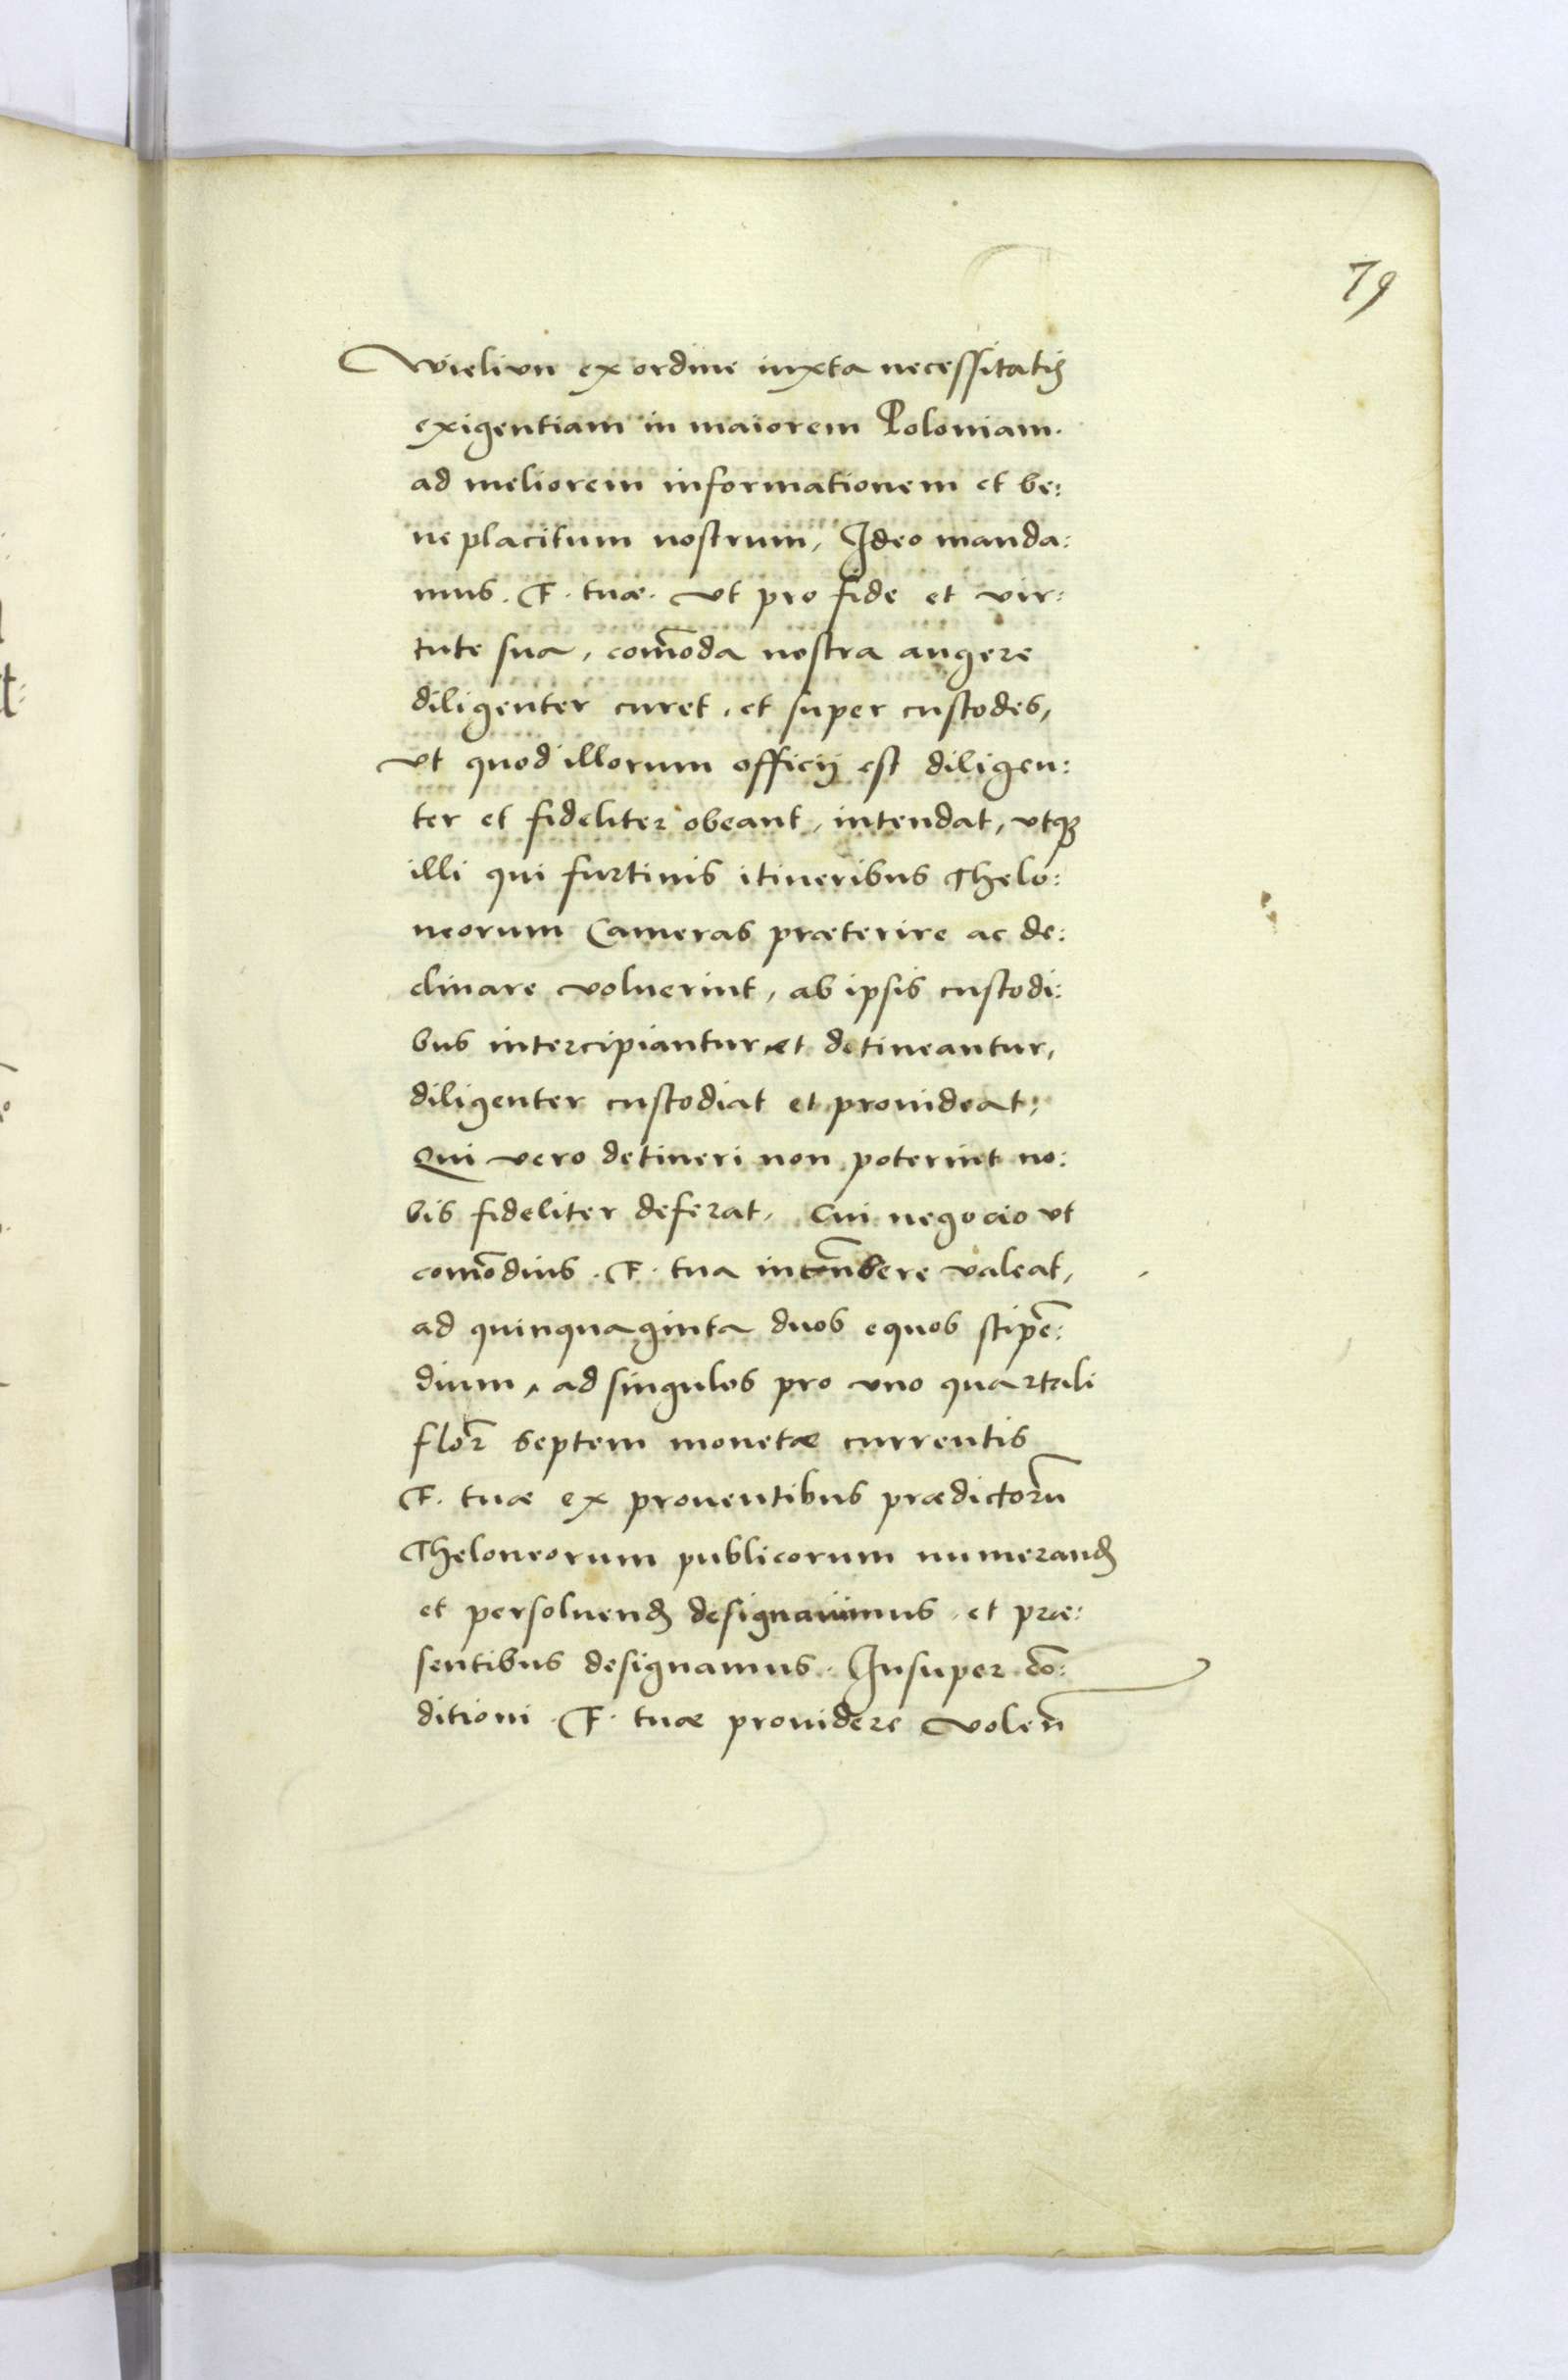 79
Wieliun ex ordine iuxta necessitatis
exigentiam in maiorem Poloniam.
ad meliorem informationem et be:
neplacitum nostrum, Ideo manda:
mus. F. tuæ. vt pro fide et vir:
tute sua, com̃oda nostra augere
diligenter curet, et super custodes,
vt quod illorum officij est diligen:
ter et fideliter obeant, intendat, vtqꝫ
illi qui furtiuis itineribus Thelo:
neorum Cameras præterire ac de:
clinare voluerint, ab ipsis custodi:
bus intercipiantur et detineantur,
diligenter custodiat et prouideat:
Qui vero detineri non poterint no:
bis fideliter deferat, Cui negocio vt
com̃odius. F. tua incũbere valeat,
ad quinquaginta duos equos stipẽ:
dium, ad singulos pro vno quartali
flor̃ septem monetæ currentis
F. tuæ ex prouentibus prædictorũ
Theloneorum publicorum numerand̃
et persoluend̃ designauimus, et præ:
sentibus designamus. Insuper cõ:
ditioni. F. tuæ prouidere volen̄